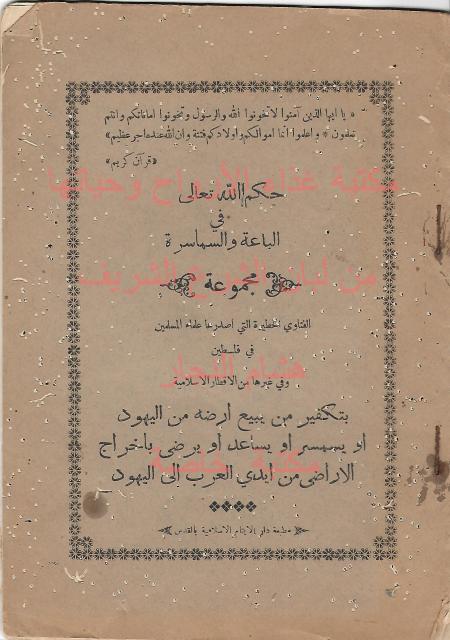 « يا ايها الذين آمنوا لا تخونوا الله والرسول وتخونوا اماناتكم وانتم
تعلمون * واعلموا أنما اموالكم واولادكم فتنة وان الله عنده اجر عظيم»
«قرآن كريم»
مكتبة غذاء الأرواح وحياتها
حكم الله تعالى
في
الباعة والسماسرة
من لبان الشرع الشريف
مجموعة
الفتاوي الخطيرة التي اصدرها علماء المسلمين
في فلسطين
هشام النجار
وفي غيرها من الاقطار الاسلامية
بتكفير من يبيع ارضه من اليهود
او يسمسر او يساعد او يرضى باخراج
مكتبة خاصة
الاراضي من ايدي العرب الى اليهود
مطبعة دار الايتام الاسلامية بالقدس